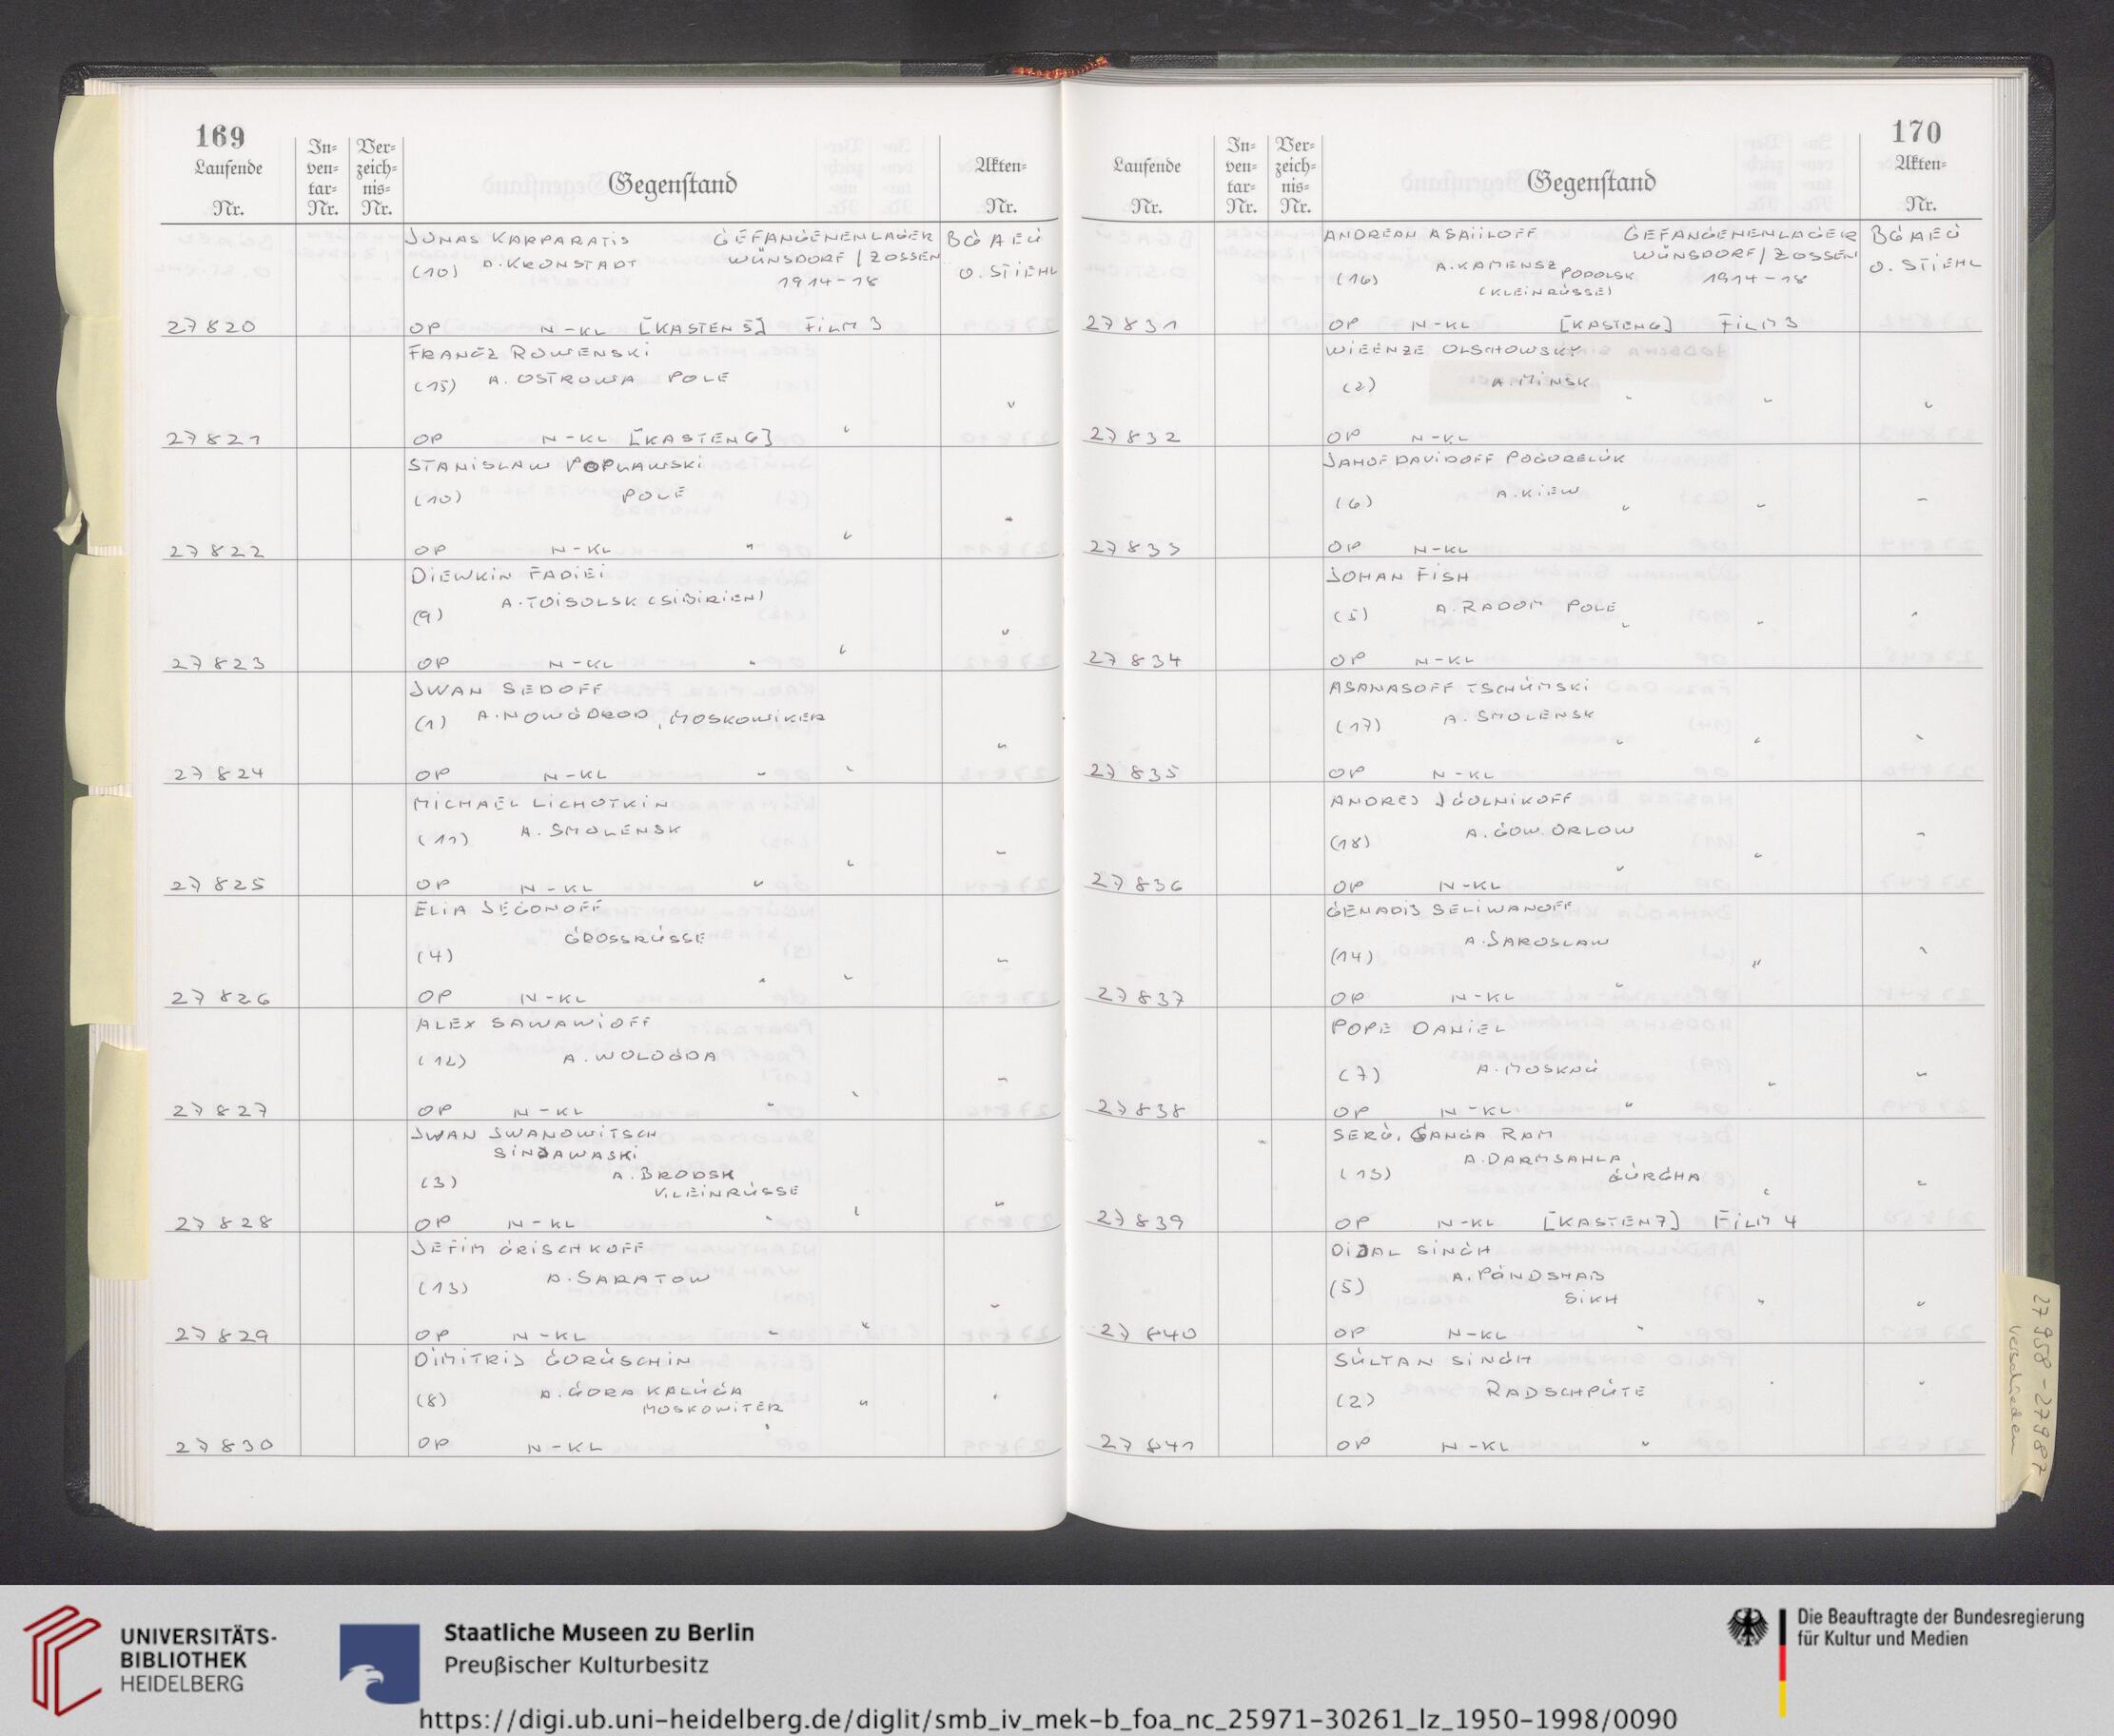 169
Laufende Nr.
In-ven-tar-Nr.
Ver-zeich-nis-Nr.
Gegenstand
Akten-Nr.
JONAS KARPARATIS GEFANGENENLAGER BGAEU
(10) A. KRONSTADT WÜNSDORF / ZOSSEN O. STIEHL
1914-18
27820 OP N-KL [KASTEN 5] FILM 3
FRANCZ ROWENSKI
(15) A. OSTROWA POLE
27821 OP N-KL [KASTEN 6] "
STANISLAW POPLAWSKI
(10) POLE
27822 OP N-KL " "
DIEWKIN FADIEI
(9) A. TOISOLSK (SIBIRIEN)
27823 OP N-KL " "
IWAN SEDOFF
(1) A. NOWGOROD, MOSKOWIKER
27824 OP N-KL " "
MICHAEL LICHOTKIN
(11) A. SMOLENSK
27825 OP N-KL " "
ELIA JEGONOFF
GROSSRUSSE
(4)
27826 OP N-KL " "
ALEX SAWAWIOFF
(12) A. WOLOGDA
27827 OP N-KL " "
IWAN IWANOWITSCH
SINJAWASKI
(3) A. BRODSK
KLEINRUSSE
27828 OP N-KL " "
JEFIM GRISCHKOFF
(13) A. SARATOW
27829 OP N-KL " "
DIMITRIJ GORUSCHIN
(8) A. GORA KALUGA "
MOSKOWITER
27830 OP N-KL "
170
Laufende Nr.
In-ven-tar-Nr.
Ver-zeich-nis-Nr.
Gegenstand
Akten-Nr.
ANDREAN ASAIILOFF GEFANGENENLAGER BGAEU
(16) A. KAMENSZ PODOLSK WÜNSDORF / ZOSSEN O. STIEHL
(KLEINRUSSE) 1914-18
27831 OP N-KL [KASTEN 6] FILM 3
WIEENZE OLSCHOWSKY
(2) A. MINSK
27832 OP N-KL
JAHOF DAVIDOFF POGORELUK
(6) A. KIEW
27833 OP N-KL
JOHAN FISH
(5) A. RADOM POLE
27834 OP N-KL
ASANASOFF TSCHUMSKI
(17) A. SMOLENSK
27835 OP N-KL
ANDREJ IGOLNIKOFF
(18) A. GOW. ORLOW
27836 OP N-KL
GENADIJ SELIWANOFF
A. JAROSLAW
(14)
27837 OP N-KL
POPE DANIEL
(7) A. MOSKAU
27838 OP N-KL "
SERG. GANGA RAM
(13) A. DARMSAHLA
GURGHA
27839 OP N-KL [KASTEN 7] FILM 4
DIDAL SINGH
(5) A. PANDSHAB
SIKH
27840 OP N-KL "
SULTAN SINGH
(2) RADSCHPUTE
27841 OP N-KL "
27958-27987
verschieden
UNIVERSITÄTS-
BIBLIOTHEK
HEIDELBERG
Staatliche Museen zu Berlin
Preußischer Kulturbesitz
Die Beauftragte der Bundesregierung
für Kultur und Medien
https://digi.ub.uni-heidelberg.de/diglit/smb_iv_mek-b_foa_nc_25971-30261_lz_1950-1998/0090